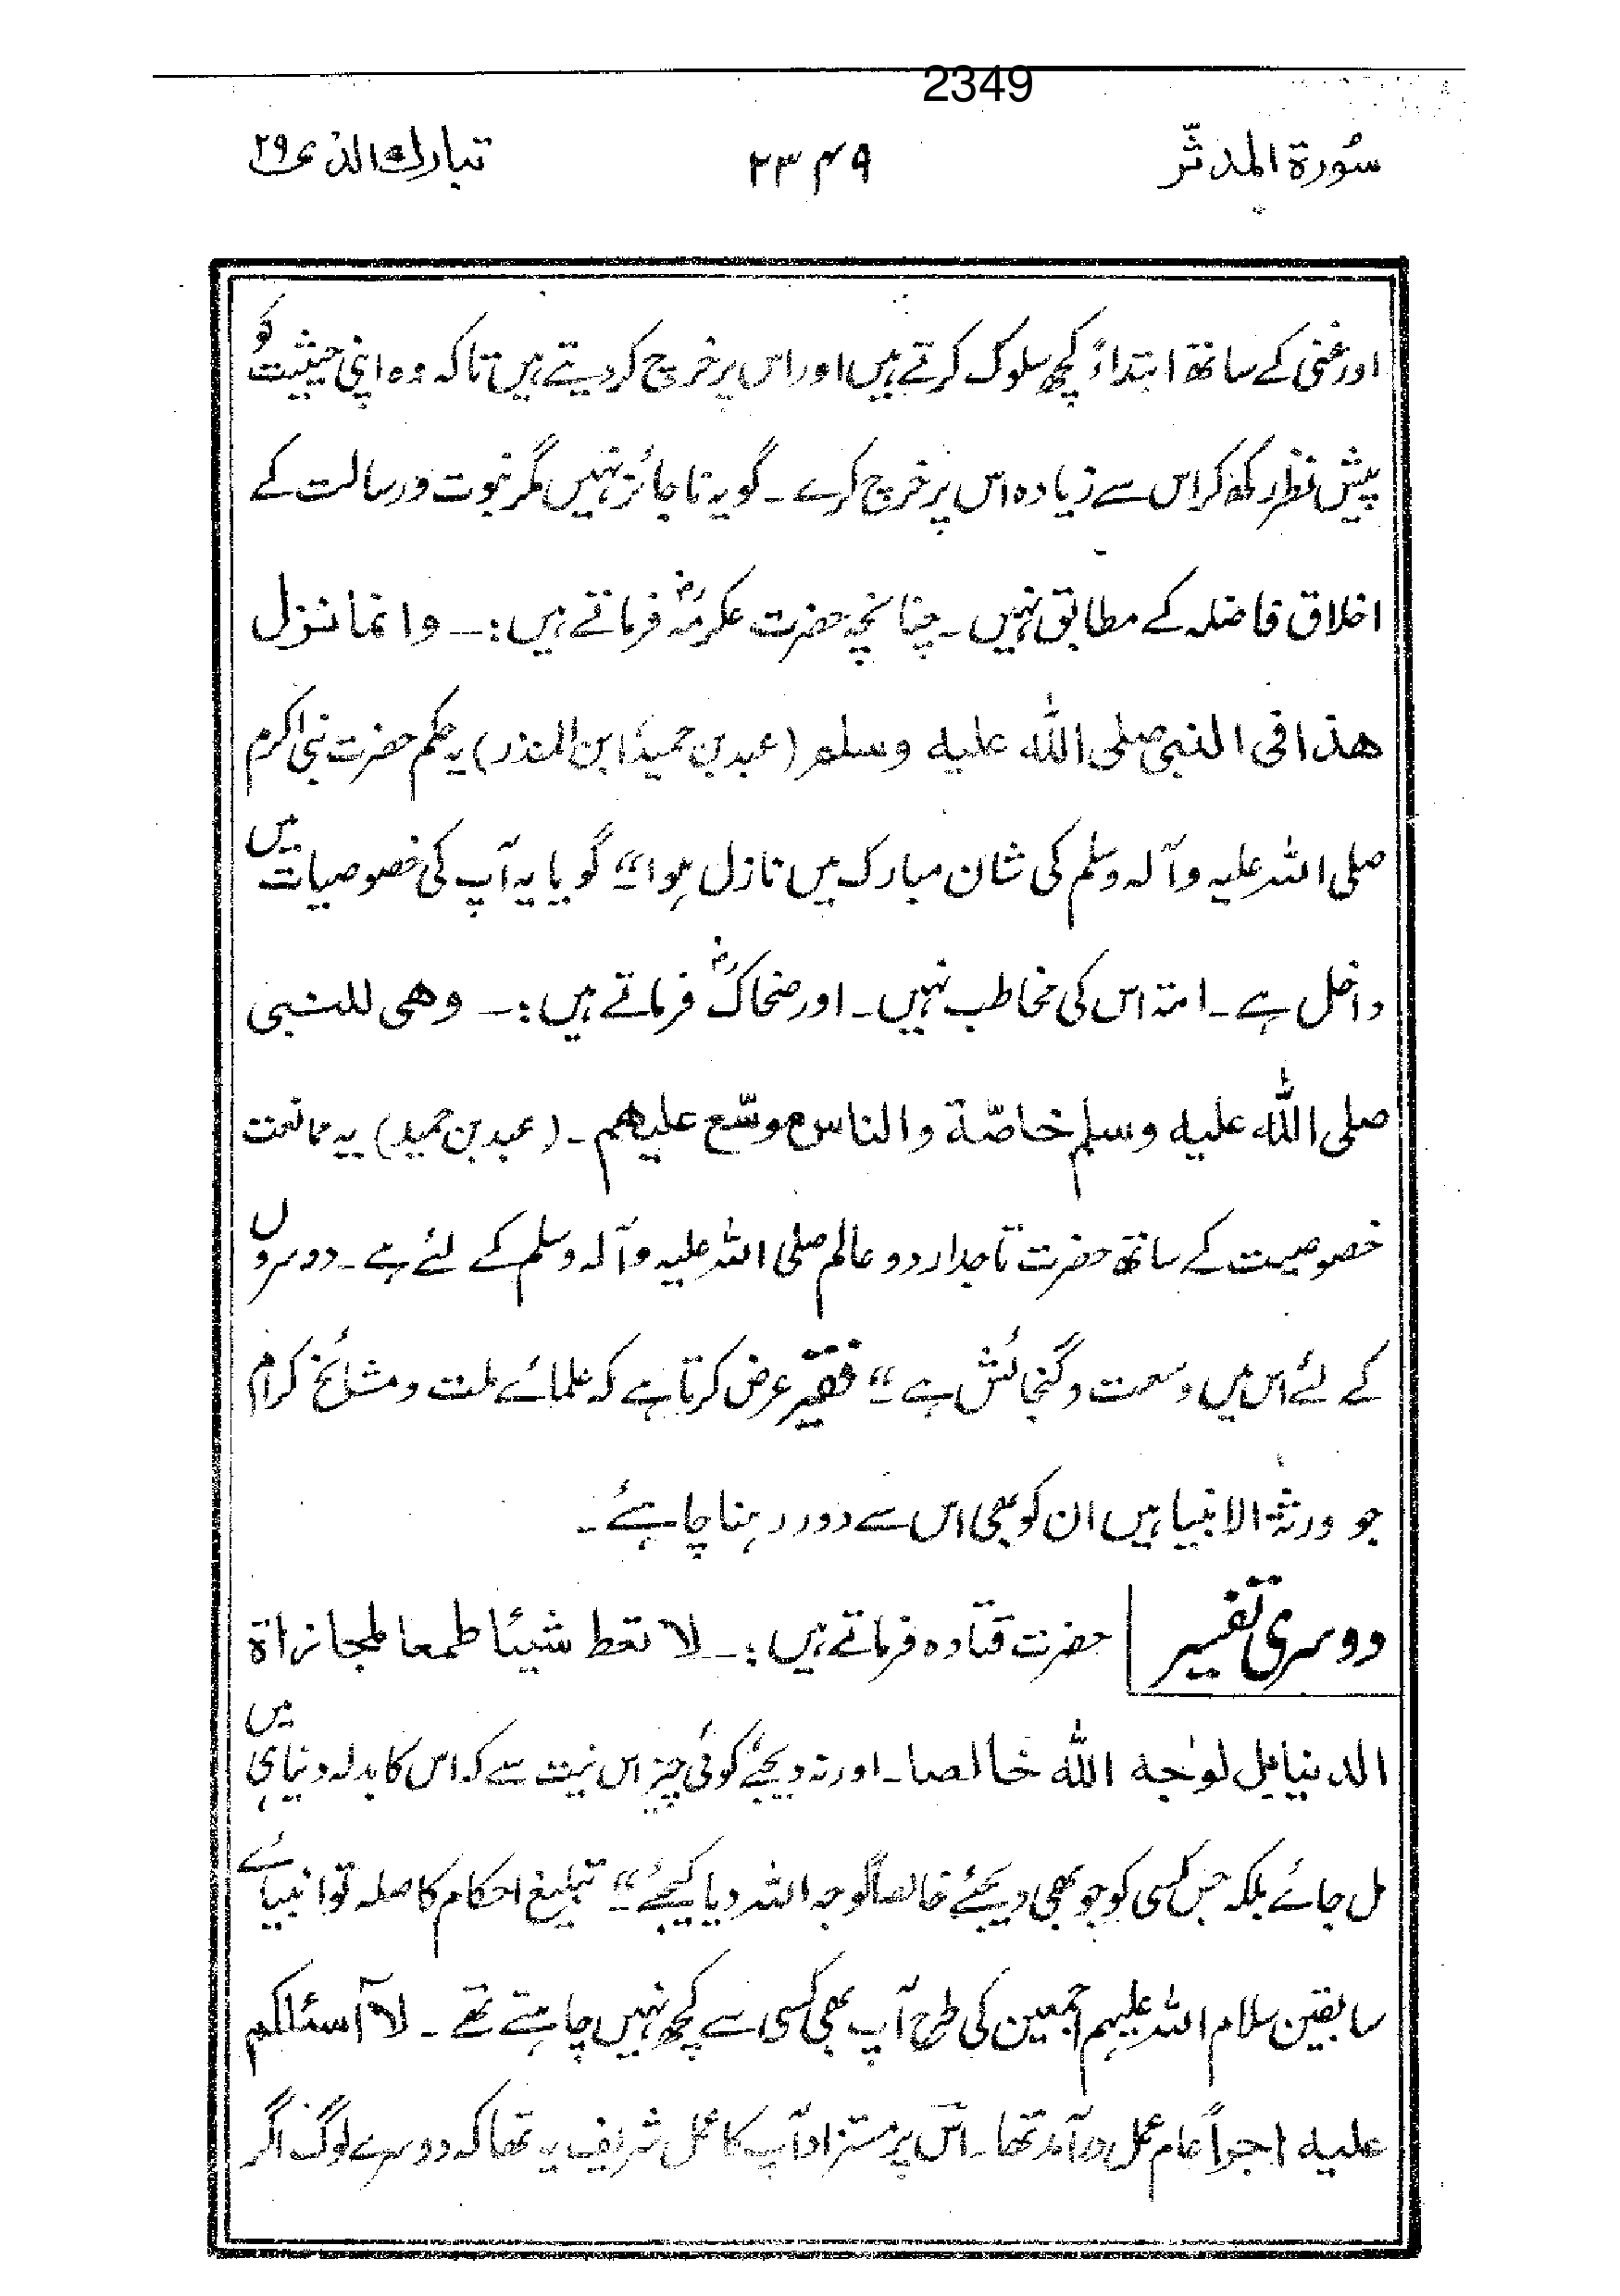 2349
سُورۃ المدثّر ۲۳۴۹ تبارك الذی ۲۹
اور غنی کے ساتھ ابتداءً کچھ سلوک کرتے ہیں اور اس پر خرچ کر دیتے ہیں تاکہ وہ اپنی حیثیت کو
پیش نظر رکھ کر اس سے زیادہ اس پر خرچ کرے ۔ گو یہ ناجائز نہیں مگر نبوت و رسالت کے
اخلاق فاضلہ کے مطابق نہیں ۔ چنانچہ حضرت عکرمہؓ فرماتے ہیں :۔ وانما نزل
هذا فی النبی صلی اللّٰه علیه وسلم (عبد بن حمید، ابن المنذر) یہ حکم حضرت نبی اکرم
صلی اللہ علیہ وآلہ وسلم کی شان مبارک میں نازل ہوا“ گویا یہ آپ کی خصوصیات میں
داخل ہے ۔ امتہ اس کی مخاطب نہیں ۔ اور ضحاکؓ فرماتے ہیں :۔ وهی للنبی
صلی اللّٰه علیه وسلم خاصّة والناس موسّع علیهم ۔ (عبد بن حمید) یہ ممانعت
خصوصیت کے ساتھ حضرت تاجدار دو عالم صلی اللہ علیہ وآلہ وسلم کے لئے ہے ۔ دوسروں
کے لئے اس میں وسعت و گنجائش ہے“ فقیر عرض کرتا ہے کہ علمائے ملت و مشائخ کرام
جو ورثۃ الانبیا ہیں ان کو بھی اس سے دور رہنا چاہئے ۔
دوسری تفسیر حضرت قتادہ فرماتے ہیں :۔ لا تعط شیئا طمعا لمجازاة
الدنیا بل لوجه اللّٰه خالصا ۔ اور نہ دیجئے کوئی چیز اس نیت سے کہ اس کا بدلہ دنیا ہی میں
مل جائے بلکہ جس کسی کو جو بھی دیجئے خالصاً لوجہ اللہ دیا کیجئے“ تبلیغ احکام کا صلہ تو انبیائے
سابقین سلام اللہ علیہم اجمعین کی طرح آپ بھی کسی سے کچھ نہیں چاہتے تھے ۔ لا آسئلکم
علیه اجراً عام عمل درآمد تھا ۔ اس پر مستزاد آپ کا عمل شریف یہ تھا کہ دوسرے لوگ اگر